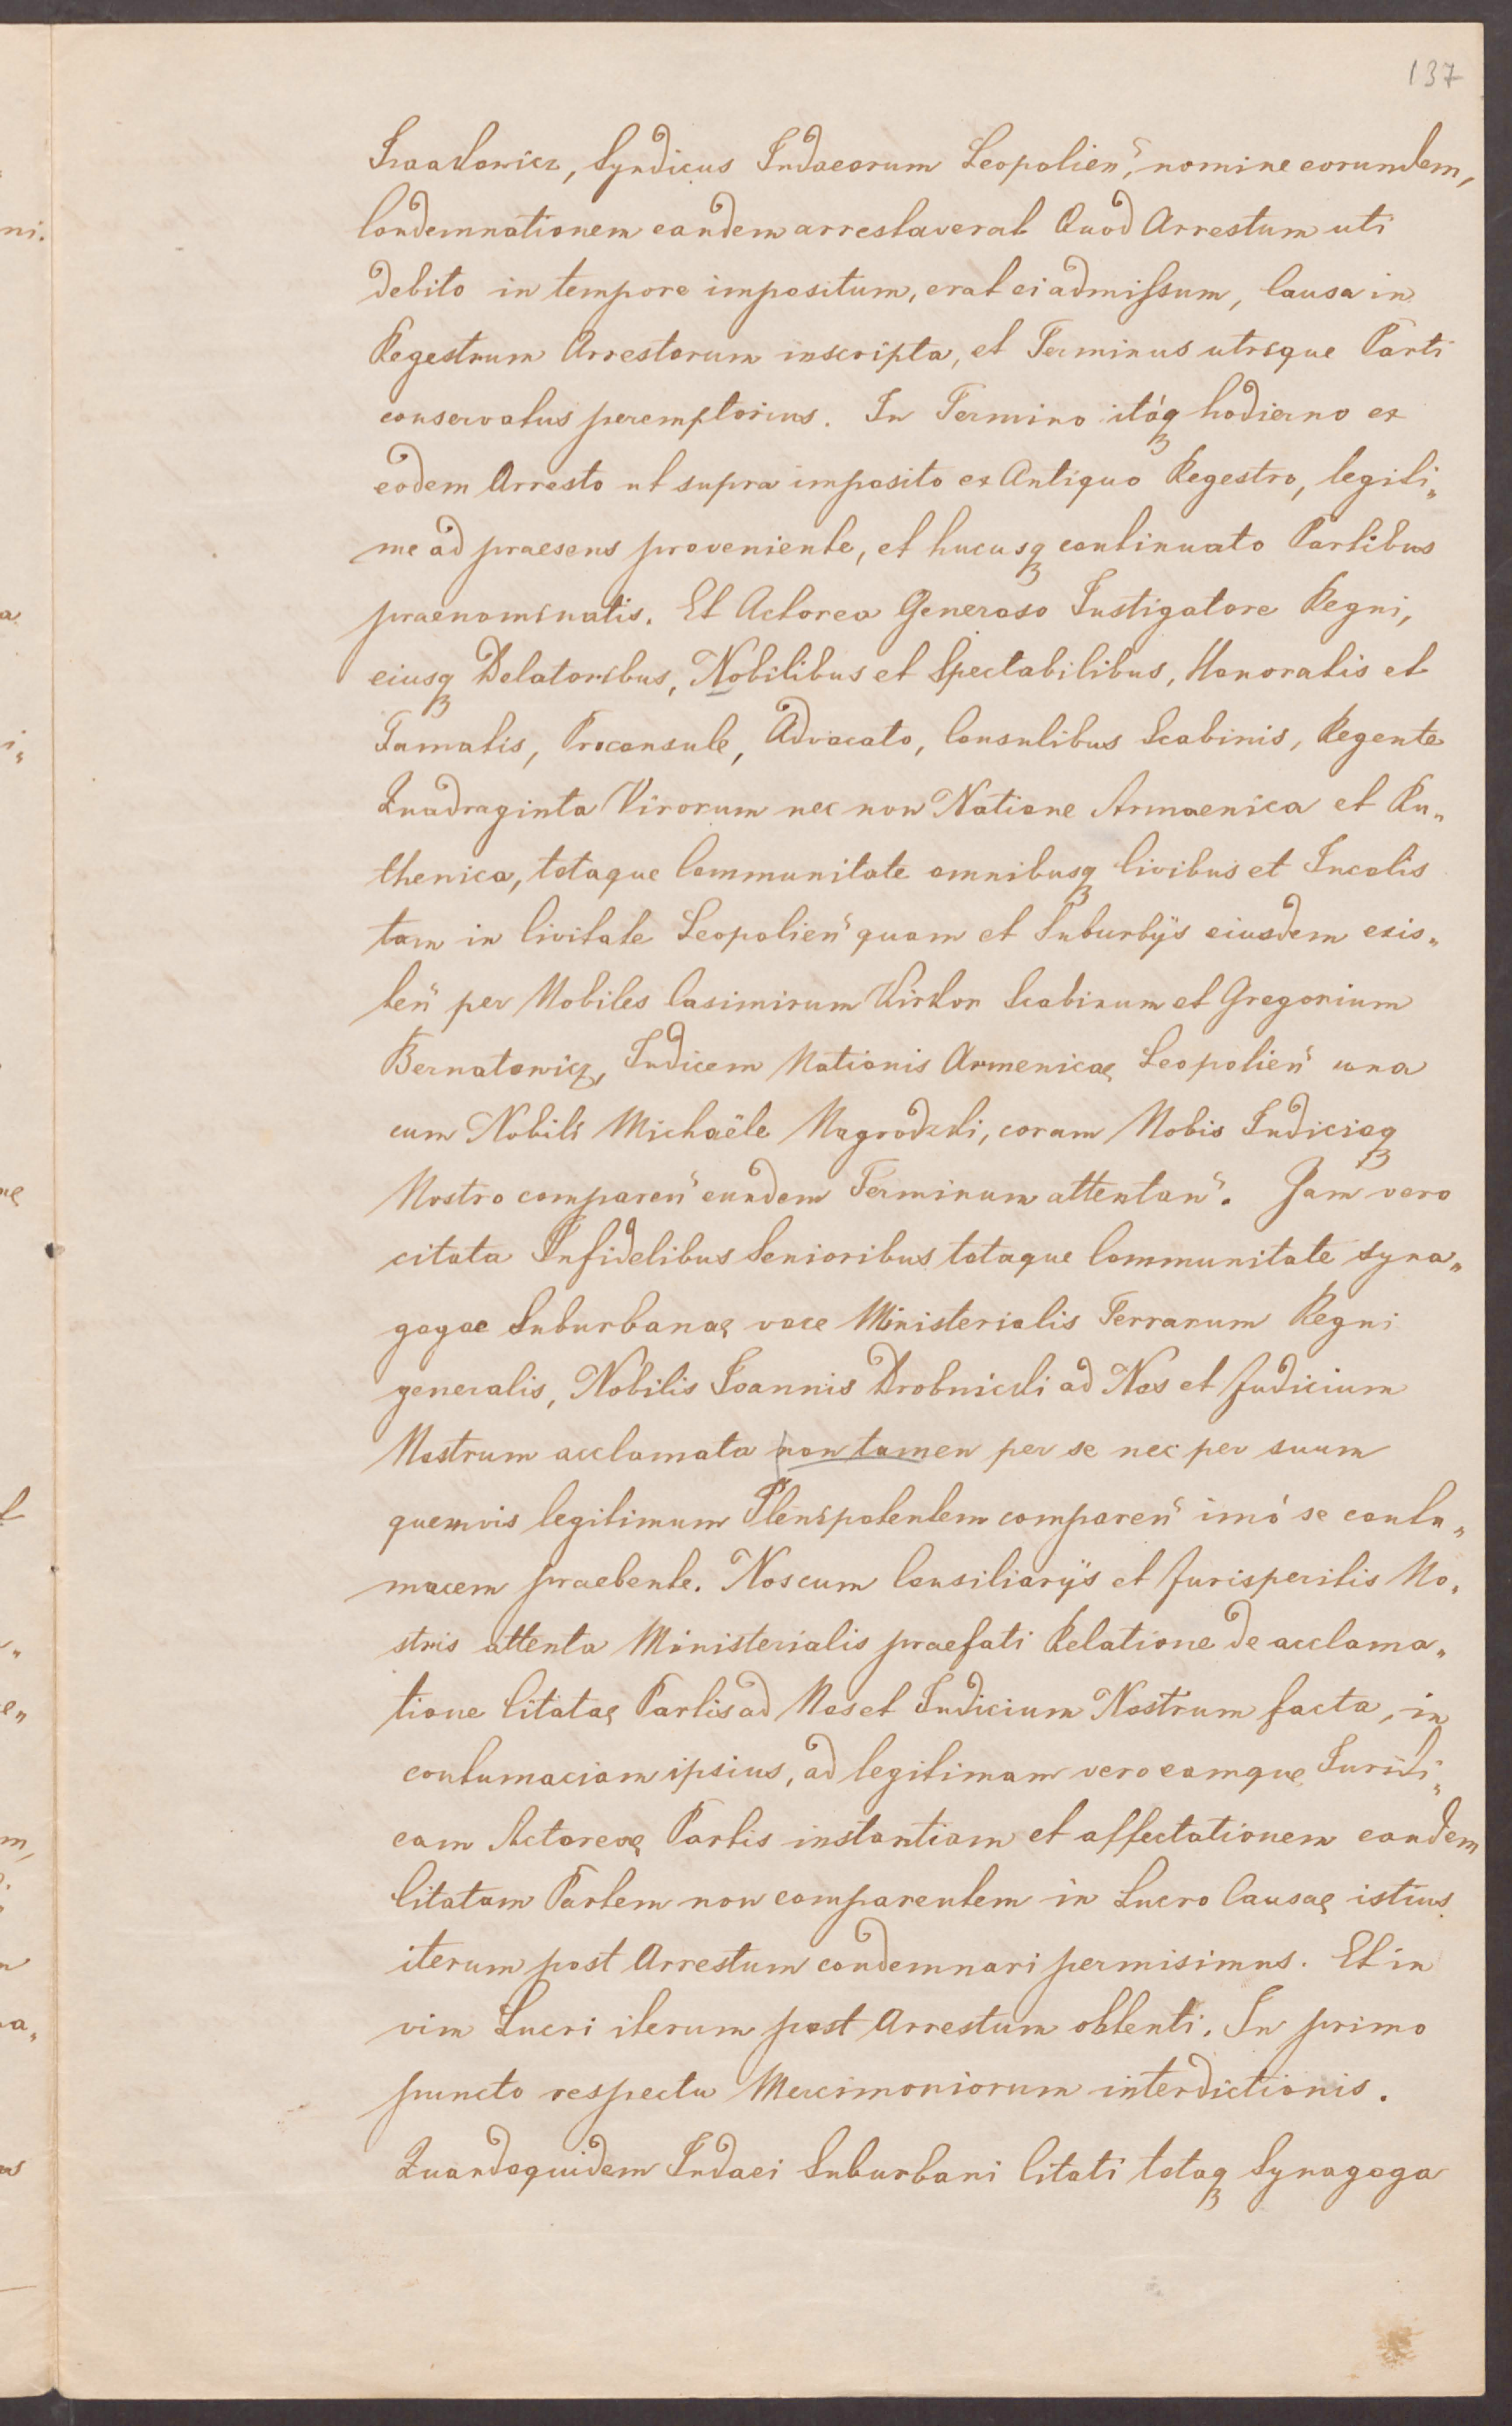 137
Isaakowicz, Syndicus Judaeorum Leopolien̄, nomine eorundem,
Condemnationem eandem arrestaverat Quod Arrestum uti
debito in tempore impositum, erat ei admiſsum, Causa in
Regestrum Arrestorum inscripta, et Terminus utrique Parti
conservatus peremptorius. In Termino itáꝗ hodierno ex
eodem Arresto ut supra imposito ex Antiquo Regestro, legiti„
me ad praesens proveniente, et hucusꝗ continuato Partibus
praenominatis. Et Actorea Generoso Instigatore Regni,
eiusꝗ Delatoribus, Nobilibus et Spectabilibus, Honoratis et
Famatis, Proconsule, Advocato, Consulibus Scabinis, Regente
Quadraginta Virorum nec non Natione Armaenica et Ru„
thenica, totaque Communitate omnibusꝗ Civibus et Incolis
tam in Civitate Leopolien̄ quam et Suburbÿs eiusdem exis„
ten̄ per Nobiles Casimirum Kirkor Scabinum et Gregorium
Bernatowicz, Judicem Nationis Armenicae Leopolien̄ una
cum Nobili Michaële Nagrodzki, coram Nobis Judicioꝗ
Nostro comparen̄ eundem Terminum attentan̄. Jam vero
citata Infidelibus Senioribus totaque Communitate syna„
gogae Suburbanae voce Ministerialis Terrarum Regni
generalis, Nobilis Joannis Drobnicki ad Nos et Judicium
Nostrum acclamata non tamen per se nec per suum
quemvis legitimum Plenipotentem comparen̄ imó se contu„
macem praebente. Nos cum Consiliarÿs et Jurisperitis No„
stris attenta Ministerialis praefati Relatione de acclama„
tione Citatae Partis ad Nos et Judicium Nostrum facta, in
contumaciam ipsius, ad legitimam vero eamque Juridi„
cam Actoreae Partis instantiam et affectationem eandem
Citatam Partem non comparentem in Lucro Causae istius
iterum post Arrestum condemnari permisimus. Et in
vim Lucri iterum post Arrestum obtenti. In primo
puncto respectu Mercimoniorum interdictionis.
Quandoquidem Judaei Suburbani Citati totaꝗ Synagoga